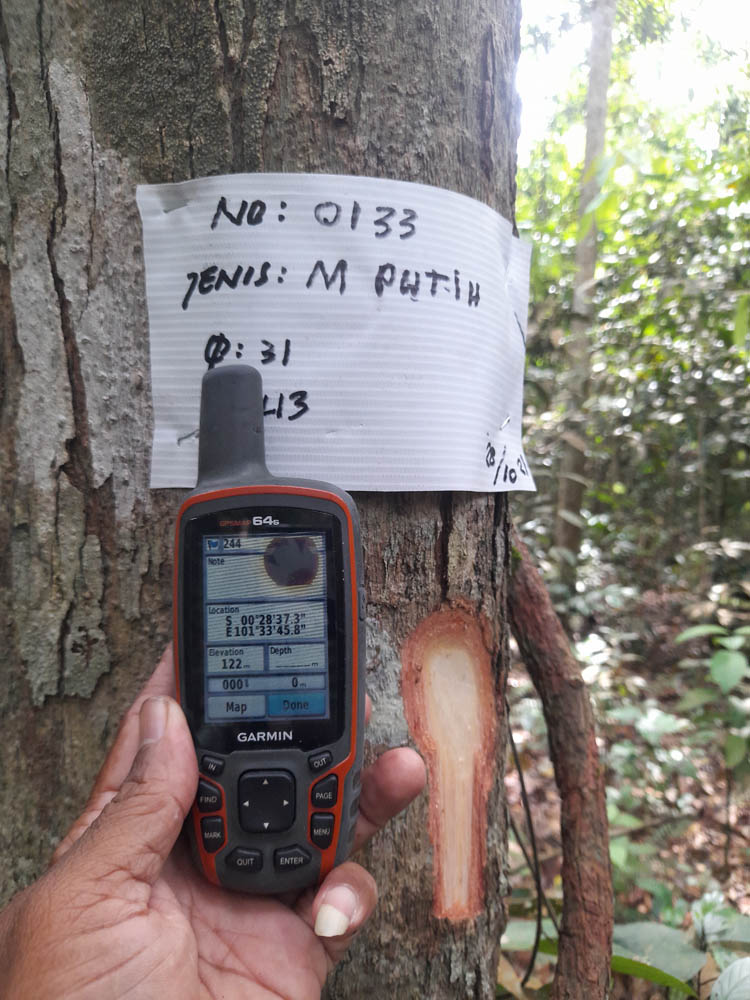 NO: 0133
JENIS: M PUTIH
Φ: 31
L13
28/10 21
GPSMAP 64s
244
Note
Location
S 00°28'37.3"
E101°33'45.8"
Elevation Depth
122m ______m
000° 0m
Map Done
GARMIN
IN OUT
FIND PAGE
MARK MENU
QUIT ENTER